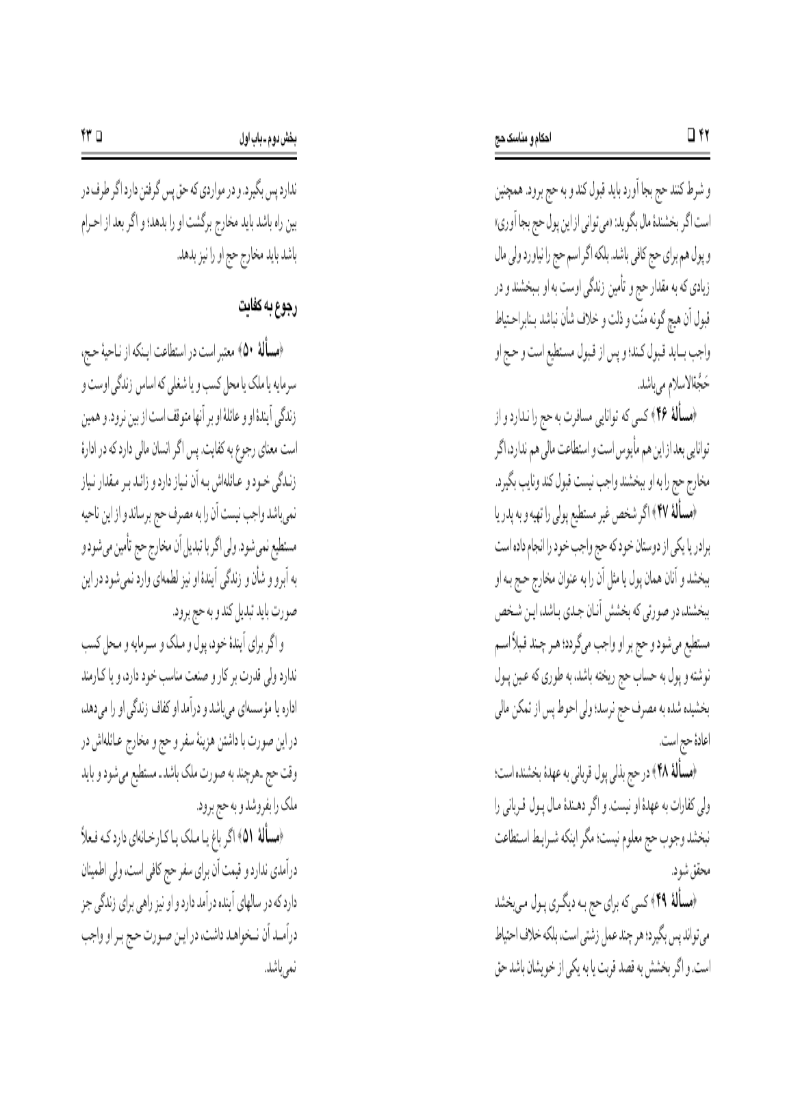 ۴۲ □ احکام و مناسک حج
و شرط کنند حج بجا آورد باید قبول کند و به حج برود. همچنین
است اگر بخشندهٔ مال بگوید: «می‌توانی از این پول حج بجا آوری»
و پول هم برای حج کافی باشد. بلکه اگر اسم حج را نیاورد ولی مال
زیادی که به مقدار حج و تأمین زندگی اوست به او ببخشند و در
قبول آن هیچ گونه منّت و ذلت و خلاف شأن نباشد بنابر احتیاط
واجب باید قبول کند؛ و پس از قبول مستطیع است و حج او
حَجَّةالاسلام می‌باشد.
﴿مسألهٔ ۴۶﴾ کسی که توانایی مسافرت به حج را ندارد و از
توانایی بعد از این هم مأیوس است و استطاعت مالی هم ندارد، اگر
مخارج حج را به او ببخشند واجب نیست قبول کند ونایب بگیرد.
﴿مسألهٔ ۴۷﴾ اگر شخص غیر مستطیع پولی را تهیه و به پدر یا
برادر یا یکی از دوستان خود که حج واجب خود را انجام داده است
ببخشد و آنان همان پول یا مثل آن را به عنوان مخارج حج به او
ببخشند، در صورتی که بخشش آنان جدی باشد، این شخص
مستطیع می‌شود و حج بر او واجب می‌گردد؛ هر چند قبلاً اسم
نوشته و پول به حساب حج ریخته باشد، به طوری که عین پول
بخشیده شده به مصرف حج نرسد؛ ولی احوط پس از تمکن مالی
اعادهٔ حج است.
﴿مسألهٔ ۴۸﴾ در حج بذلی پول قربانی به عهدهٔ بخشنده است؛
ولی کفارات به عهدهٔ او نیست. و اگر دهندهٔ مال پول قربانی را
نبخشد وجوب حج معلوم نیست؛ مگر اینکه شرایط استطاعت
محقق شود.
﴿مسألهٔ ۴۹﴾ کسی که برای حج به دیگری پول می‌بخشد
می‌تواند پس بگیرد؛ هر چند عمل زشتی است، بلکه خلاف احتیاط
است. و اگر بخشش به قصد قربت یا به یکی از خویشان باشد حق
بخش دوم ـ باب اول □ ۴۳
ندارد پس بگیرد. و در مواردی که حق پس گرفتن دارد اگر طرف در
بین راه باشد باید مخارج برگشت او را بدهد؛ و اگر بعد از احرام
باشد باید مخارج حج او را نیز بدهد.
رجوع به کفایت
﴿مسألهٔ ۵۰﴾ معتبر است در استطاعت اینکه از ناحیهٔ حج،
سرمایه یا ملک یا محل کسب و یا شغلی که اساس زندگی اوست و
زندگی آیندهٔ او و عائلهٔ او بر آنها متوقف است از بین نرود. و همین
است معنای رجوع به کفایت. پس اگر انسان مالی دارد که در ادارهٔ
زندگی خود و عائله‌اش به آن نیاز دارد و زائد بر مقدار نیاز
نمی‌باشد واجب نیست آن را به مصرف حج برساند و از این ناحیه
مستطیع نمی‌شود. ولی اگر با تبدیل آن مخارج حج تأمین می‌شود و
به آبرو و شأن و زندگی آیندهٔ او نیز لطمه‌ای وارد نمی‌شود در این
صورت باید تبدیل کند و به حج برود.
و اگر برای آیندهٔ خود، پول و ملک و سرمایه و محل کسب
ندارد ولی قدرت بر کار و صنعت مناسب خود دارد، و یا کارمند
اداره یا مؤسسه‌ای می‌باشد و درآمد او کفاف زندگی او را می‌دهد،
در این صورت با داشتن هزینهٔ سفر و حج و مخارج عائله‌اش در
وقت حج ـهرچند به صورت ملک باشدـ مستطیع می‌شود و باید
ملک را بفروشد و به حج برود.
﴿مسألهٔ ۵۱﴾ اگر باغ یا ملک یا کارخانه‌ای دارد که فعلاً
درآمدی ندارد و قیمت آن برای سفر حج کافی است، ولی اطمینان
دارد که در سالهای آینده درآمد دارد و او نیز راهی برای زندگی جز
درآمد آن نخواهد داشت، در این صورت حج بر او واجب
نمی‌باشد.